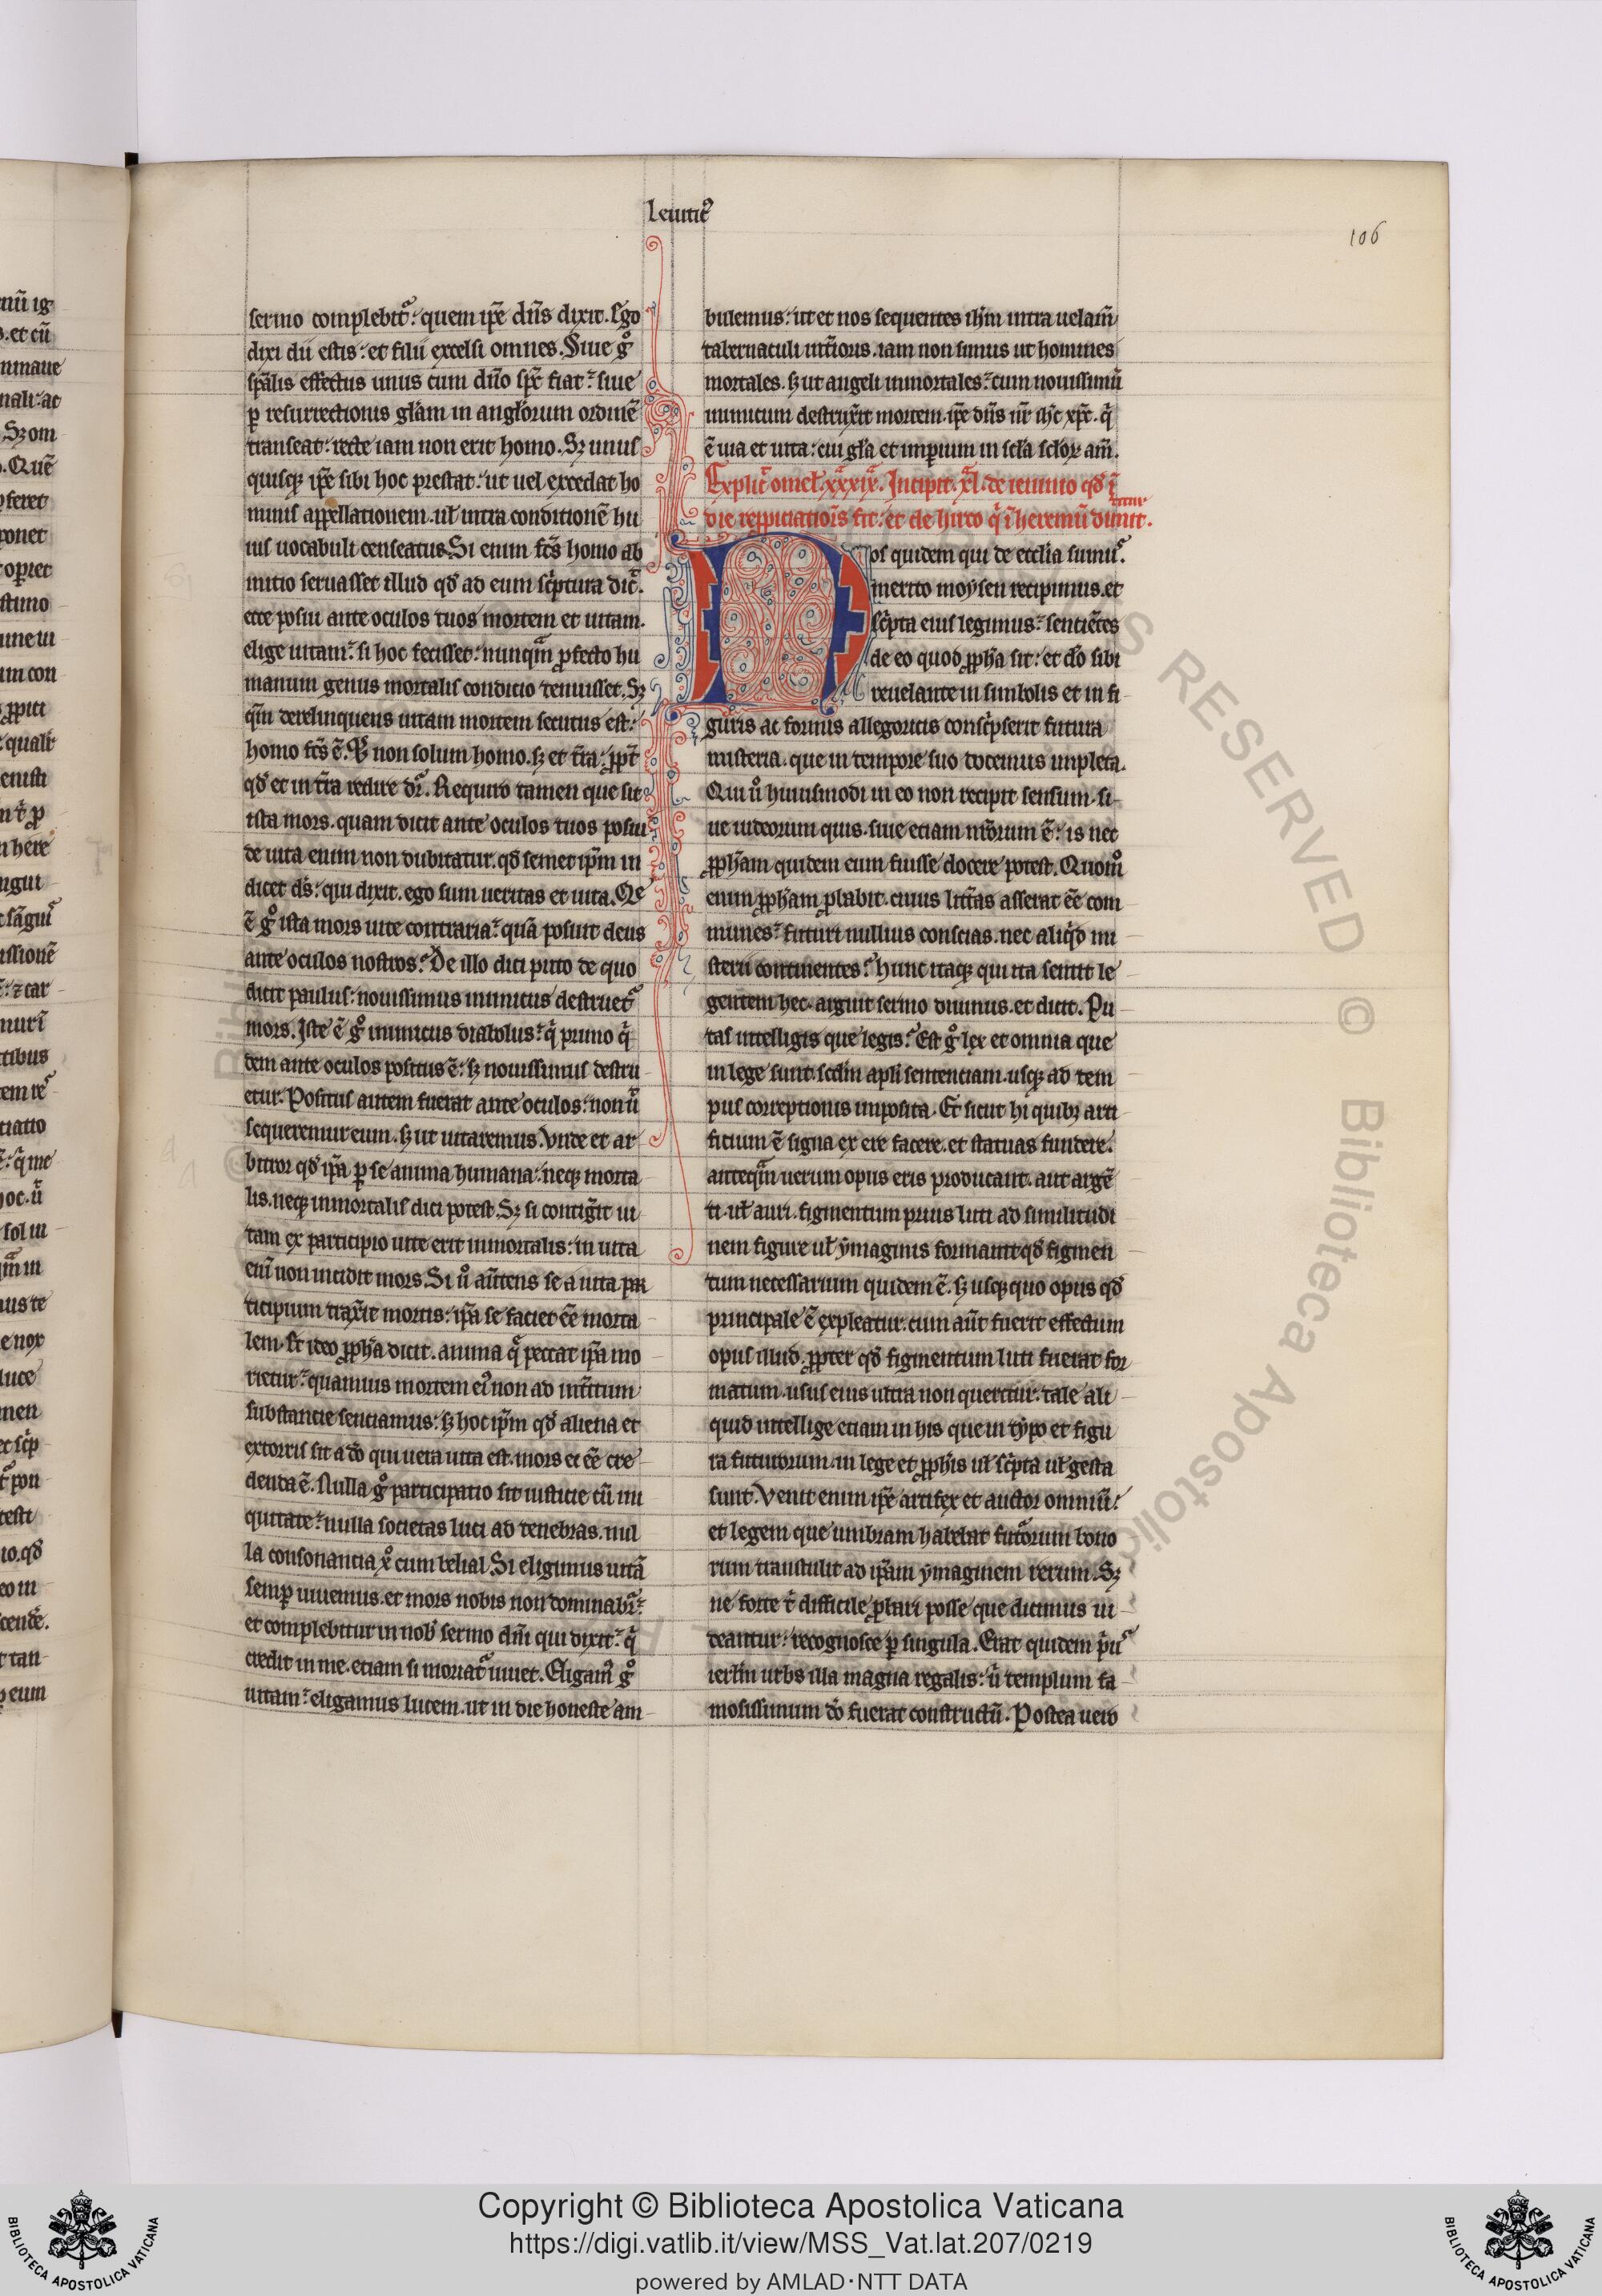 Leuitic᷒
106
sermo complebit᷑. quem ip̅e dn̅s dixit. Ego
dixi dii estis. et filii excelsi omnes. Siue gͦ
sp̅alis effectus unus cum dn̅o sp̅c fiat. siue
ꝑ resurrectionis gl̅am in angl̅orum ordinē
transeat. recte iam non erit homo. Sꝫ unus
quisqꝫ ip̅e sibi hoc prestat. ut uel excedat ho
minis appellationem. ul̅ intra conditionē hu
ius uocabuli censeatus. Si enim fc̅s homo ab
initio seruasset illud qd̅ ad eum sc̅ptura dic̅.
ecce posui ante oculos tuos mortem et uitam.
elige uitam. si hoc fecisset. nunqm̅ ꝓfecto hu
manum genus mortalis condicio tenuisset. Sꝫ
qm̅ derelinquens uitam mortem secutus est.
homo fc̅s ē. non solum homo. sꝫ et t̅ra. ꝓpt̅
qd̅ et in t̅ra redire dr̅. Requiro tamen que sit
ista mors. quam dicit ante oculos tuos posui
de uita enim non dubitatur. qd̅ semet ip̅m in
dicet ds̅. qui dixit. ego sum ueritas et uita. Qe
ē gͦ ista mors uite contraria. quā posuit deus
ante oculos nostros. De illo dici puto de quo
dicit paulus. nouissimus inimicus destruet᷑
mors. Iste ē gͦ inimicus diabolus. q̅ primo q̅
dem ante oculos positus ē. sꝫ nouissimus destru
etur. Positus autem fuerat ante oculos. non u̅
sequeremur eum. sꝫ ut uitaremus. Unde et ar
bitror qd̅ ip̅a ꝑ se anima humana. neqꝫ morta
lis. neqꝫ inmortalis dici potest. Sꝫ si contig̅it ui
tam ex participio uite erit inmortalis. in uita
eni̅ non incidit mors. Si uͦ au̅tens se a uita par
ticipium trax̅it mortis. ip̅a se faciet ee̅ morta
lem. Et ideo ꝓph̅a dicit. anima q̅ peccat ip̅a mo
rietur. quamuis mortem ei᷒ non ad int̅itum
substantie sentiamus. sꝫ hoc ip̅m qd̅ aliena et
extorris sit a do̅ qui uera uita est. mors ei ee̅ cre
denta ē. Nulla gͦ participatio sit iusticie cū ini
quitate. nulla societas luci ad tenebras. nul
la consonantia xͦ cum belial. Si eligimus uitā
semꝑ uiuemus. et mors nobis non dominabr̅.
et complebitur in nob̅ sermo dn̅i qui dixit. q̅
credit in me. etiam si moriat᷑ uiuet. Eligam᷒ gͦ
uitam. eligamus lucem. ut in die honeste am
bulemus. ut et nos sequentes ih̅m intra uelam̅
tabernaculi int̅ioris. iam non simus ut homines
mortales. sꝫ ut angeli inmortales. cum nouissimū
inimicum destrux̅it mortem. ip̅e dn̅s nr̅ ih̅c xp̅c. q̅
ē uia et uita. cui gl̅a et imꝑium in scl̅a scl̅oꝝ am̅.
Explic̅ omel̅. xxxixͣ. Incipit. xlͣ. de ieiunio qd̅ ī
die reꝓpiciatiois̅ fit. et de hirco q̅ ī heremū dimit.
titur
Nos quidem qui de ecclia sumus᷒
merito moysen recipimus. et
sc̅pta eius legimus. sentiētes
de eo quod ꝓph̅a sit. et do̅ sibi
reuelante in simbolis et in fi
guris ac formis allegoricis consc̅pserit futura
misteria. que in tempore suo docemus inpleta.
Qui uͦ huiusmodi in eo non recipit sensum. si
ue iudeorum quis. siue etiam nr̅orum ē. is nec
ꝓph̅am quidem eum fuisse docere potest. Quomͦ
enim ꝓph̅am ꝓbabit. cuius litt̅as asserat ee̅ com
munes. futuri nullius conscias. nec aliq̅d mi
sterii continentes. Hunc itaqꝫ qui ita sentit le
gentem hec. arguit sermo diuinus. et dicit. Pu
tas intelligis que legis. Est gͦ lex et omnia que
in lege sunt. scd̅m apl̅i sententiam. usqꝫ ad tem
pus correptionis inposita. Et sicut hi quibꝫ arti
ficium ē signa ex ere facere. et statuas fundere.
anteqm̅ uerum opus eris producant. aut argē
ti. ul̅ auri. figmentum prius luti ad similitudi
nem figure ul̅ ymaginis formant. qd̅ figmen
tum necessarium quidem ē. sꝫ usqꝫ quo opus qd̅
principale ē expleatur. cum aut̅ fuerit effectum
opus illud. ꝓpter qd̅ figmentum luti fuerat for
matum. usus eius ultra non queritur. tale ali
quid intellige etiam in his que in typo et figu
ra futurorum. in lege et ꝓph̅is ul̅ sc̅pta ul̅ gesta
sunt. Venit enim ip̅e artifex et auctor omniū.
et legem que umbram habebat futurorum bono
rum transtulit ad ip̅am ymaginem rerum. Sꝫ
ne forte t̅ difficile ꝓbari posse que dicimus ui
deantur. recognosce ꝑ singula. Erat quidem p̅us᷒
ierl̅m urbs illa magna regalis. u̅ templum fa
mosissimum do̅ fuerat constructū. Postea uero
Copyright © Biblioteca Apostolica Vaticana
https://digi.vatlib.it/view/MSS_Vat.lat.207/0219
powered by AMLAD·NTT DATA